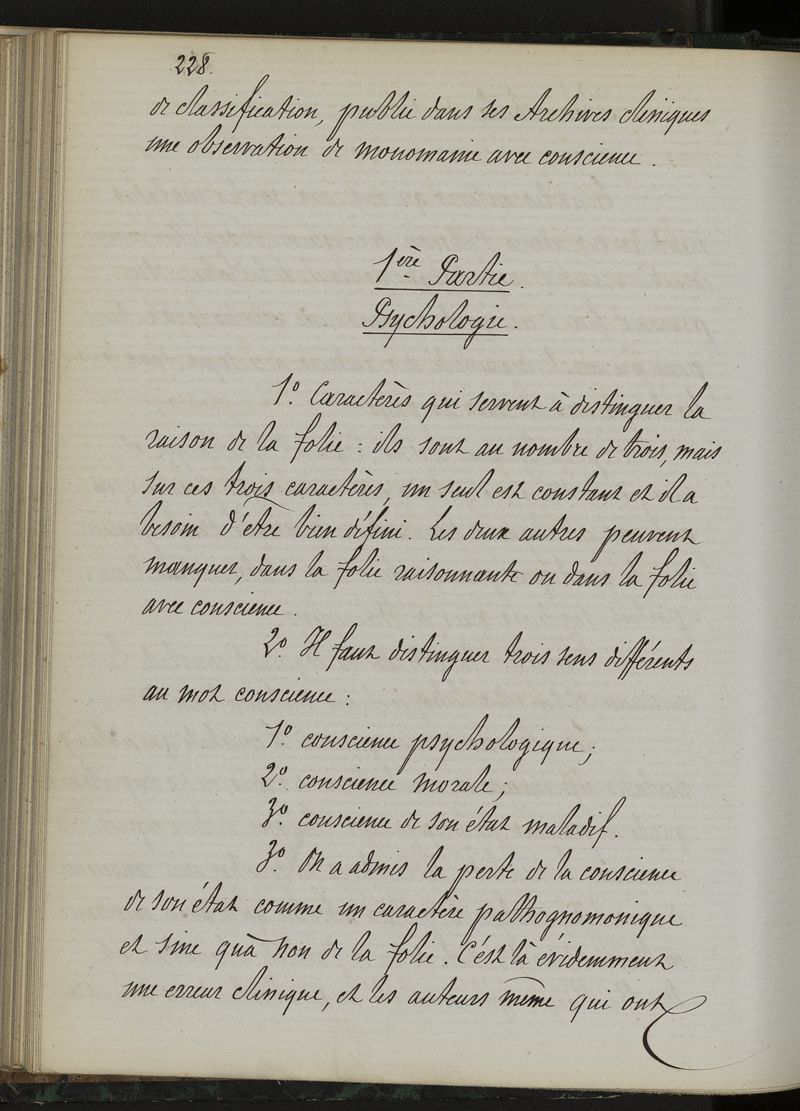 228.
de classification, publie dans ses Archives cliniques
une observation de monomanie avec conscience.
1ère Partie.
Psychologie.
1º. Caractères qui servent à distinguer la
raison de la folie : ils sont au nombre de trois, mais
sur ces trois caractères, un seul est constant et il a
besoin d'être bien défini. Les deux autres peuvent
manquer, dans la folie raisonnante ou dans la folie
avec conscience.
2º. Il faut distinguer trois sens différents
au mot conscience :
1º. conscience psychologique;
2º. conscience morale;
3º. conscience de son état maladif.
3º. On a admis la perte de la conscience
de son état comme un caractère pathognomonique
et sine quâ non de la folie. C'est là évidemment
une erreur clinique, et les auteurs même qui ont